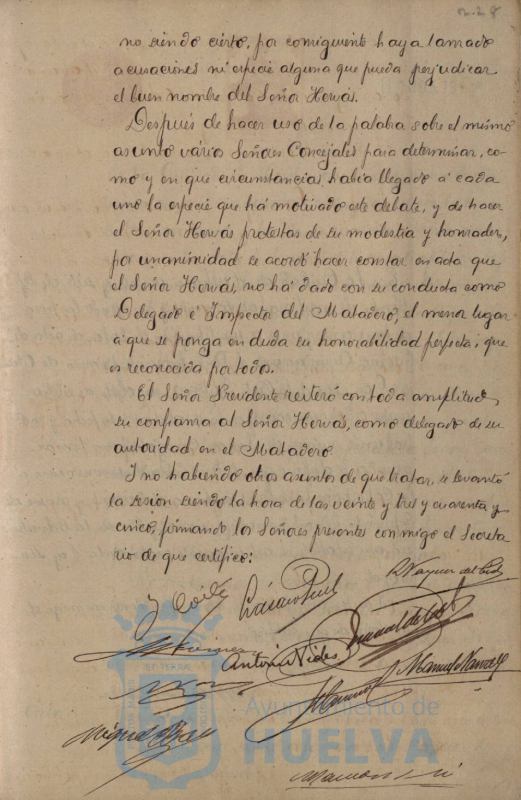 no siendo cierto, por consiguiente haya lanzado
acusaciones ni especie alguna que pueda perjudicar
el buen nombre del Señor Hervás.
Después de hacer uso de la palabra sobre el mismo
asunto varios Señores Concejales para determinar, co-
mo y en que circunstancias había llegado á cada
uno la especie que há motivado este debate, y de hacer
el Señor Hervás protestas de su modestia y honradez,
por unanimidad se acordó hacer constar en acta que
el Señor Hervás, no há dado con su conducta como
Delegado é Inspector del Matadero, el menor lugar
á que se ponga en duda su honorabilidad perfecta, que
es reconocida por todos.
El Señor Presidente reiteró con toda amplitud
su confianza al Señor Hervás, como delegado de su
autoridad en el Matadero.
Y no habiendo otros asuntos de que tratar, se levantó
la sesion siendo la hora de las veinte y tres y cuarenta y
cinco, firmando los Señores presentes conmigo el Secreta-
rio de que certifico:
Antonio Vides
Manuel
Miguel
Ayuntamiento de
HUELVA